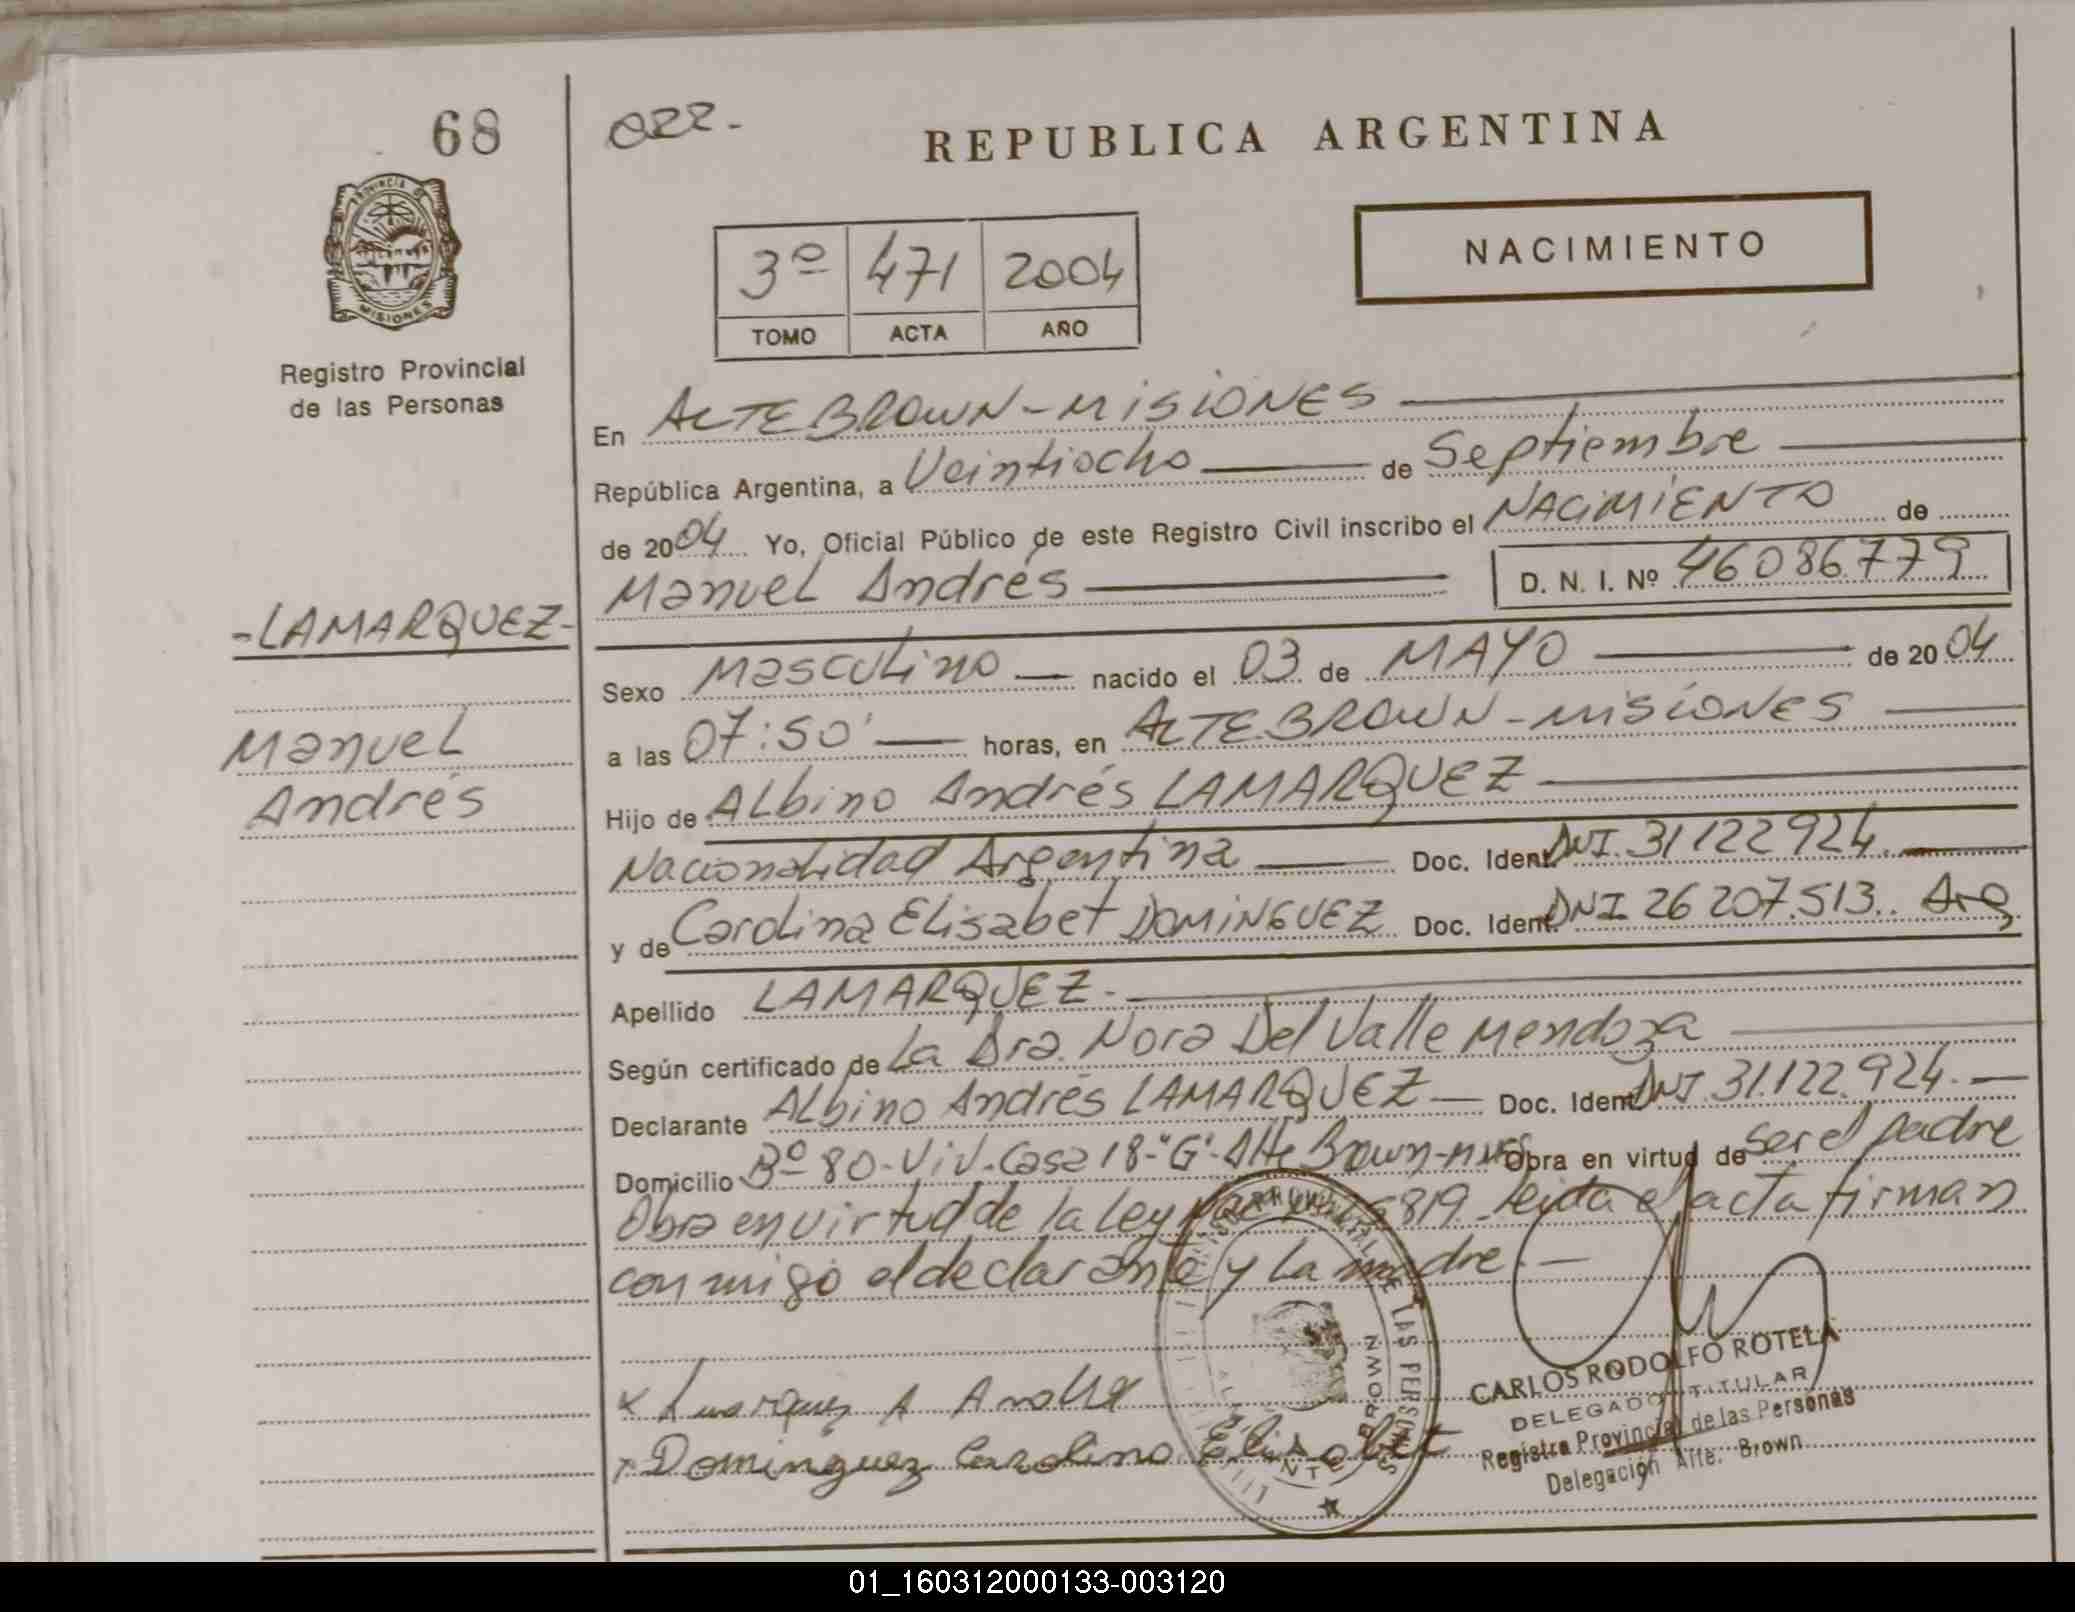 68
022.-
REPUBLICA ARGENTINA
PROVINCIA DE
MISIONES
3º 471 2004
TOMO ACTA AÑO
NACIMIENTO
Registro Provincial
de las Personas
En ALTE BROWN-MISIONES
República Argentina, a Veintiocho de Septiembre
de 2004 Yo, Oficial Público de este Registro Civil inscribo el NACIMIENTO de
Manuel Andrés D. N. I. Nº 46086.779
-LAMARQUEZ-
Manuel
Andrés
Sexo Masculino nacido el 03 de MAYO de 2004
a las 07:50' horas, en ALTE BROWN-MISIONES
Hijo de Albino Andrés LAMARQUEZ
Nacionalidad Argentina Doc. Ident. DNI. 31122924.
y de Carolina Elisabet DOMINGUEZ Doc. Ident. DNI 26 207.513. Arg
Apellido LAMARQUEZ.
Según certificado de La Dra. Nora Del Valle Mendoza
Declarante Albino Andrés LAMARQUEZ Doc. Ident. DNI 31.122.924.
Domicilio Bº 80-Viv.-Casa 18-"G"-Alte Brown-mnes Obra en virtud de ser el padre
Obra en virtud de la Ley 819. leida el acta firman
conmigo el declarante y la madre.-
x A
x Dominguez Carolina Elisabet
DE LAS PERSONAS
BROWN
CARLOS RODOLFO ROTELA
DELEGADO TITULAR
Registro Provincial de las Personas
Delegación Alte. Brown
01_160312000133-003120